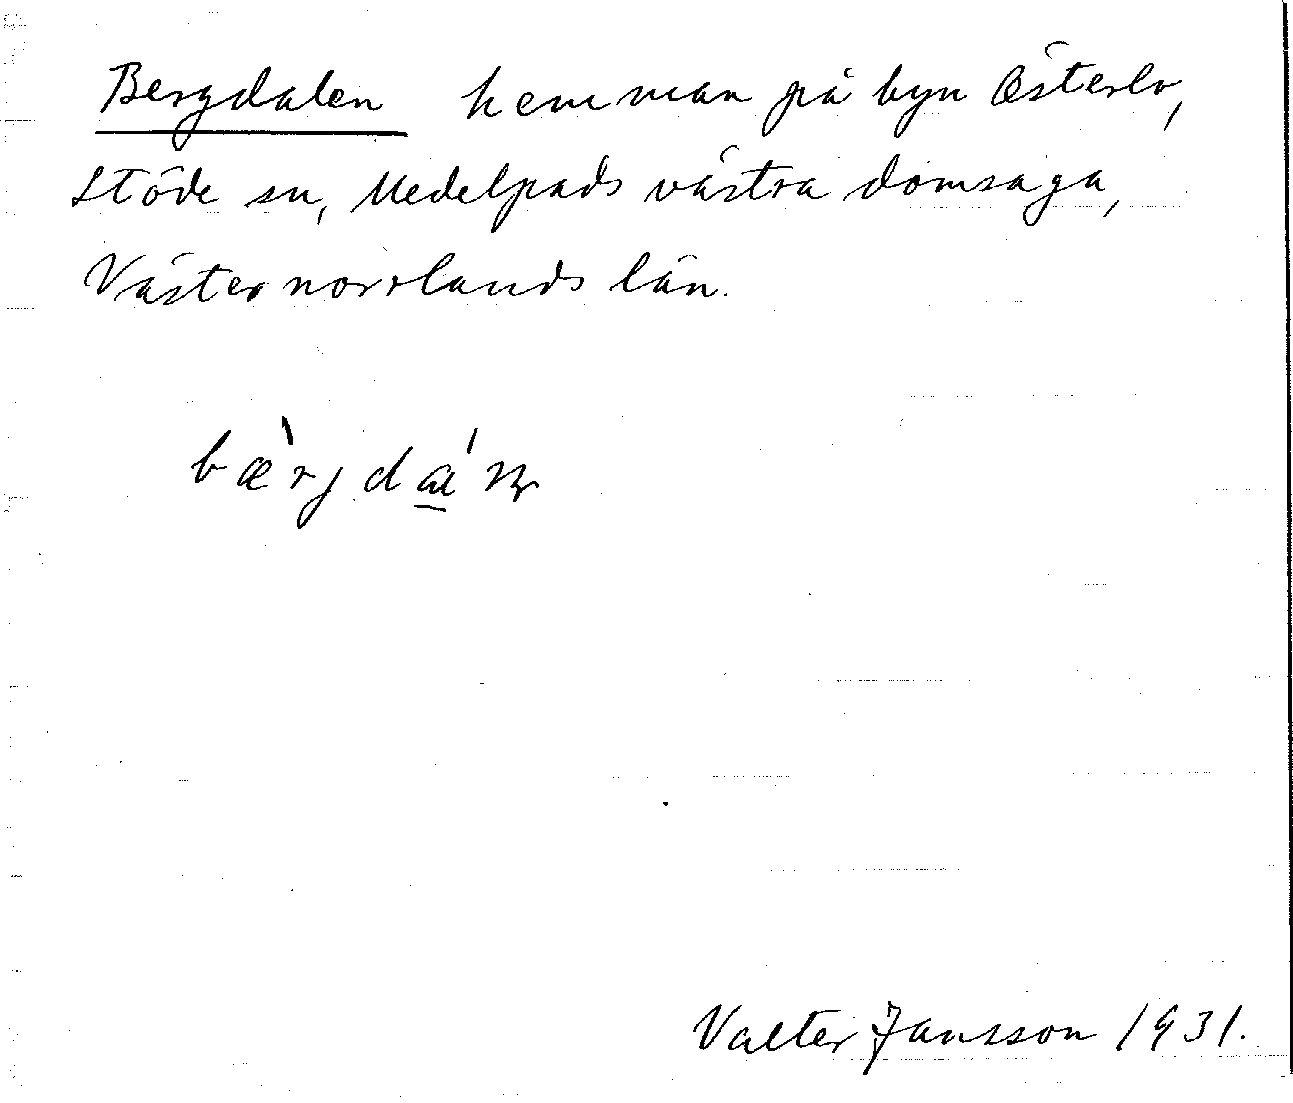 Bergdalen hemman på byn Österlo,
Stöde sn, Medelpads västra domsaga,
Västernorrlands län.
Valter Jansson 1931.